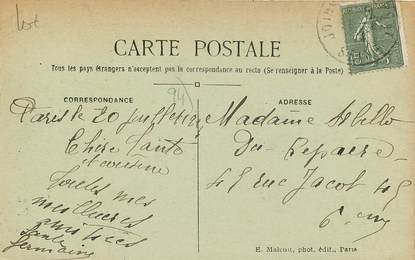 CARTE POSTALE
Tous les pays étrangers n'acceptent pas la correspondance au recto (Se renseigner à la Poste)
CORRESPONDANCE
ADRESSE
Paris le 20 juillet
Chère
et cousine
Toutes mes
meilleures
amitiés
Germaine
Madame
Du Repaire
45 rue Jacob 45
E. Malcuit, phot. édit., Paris